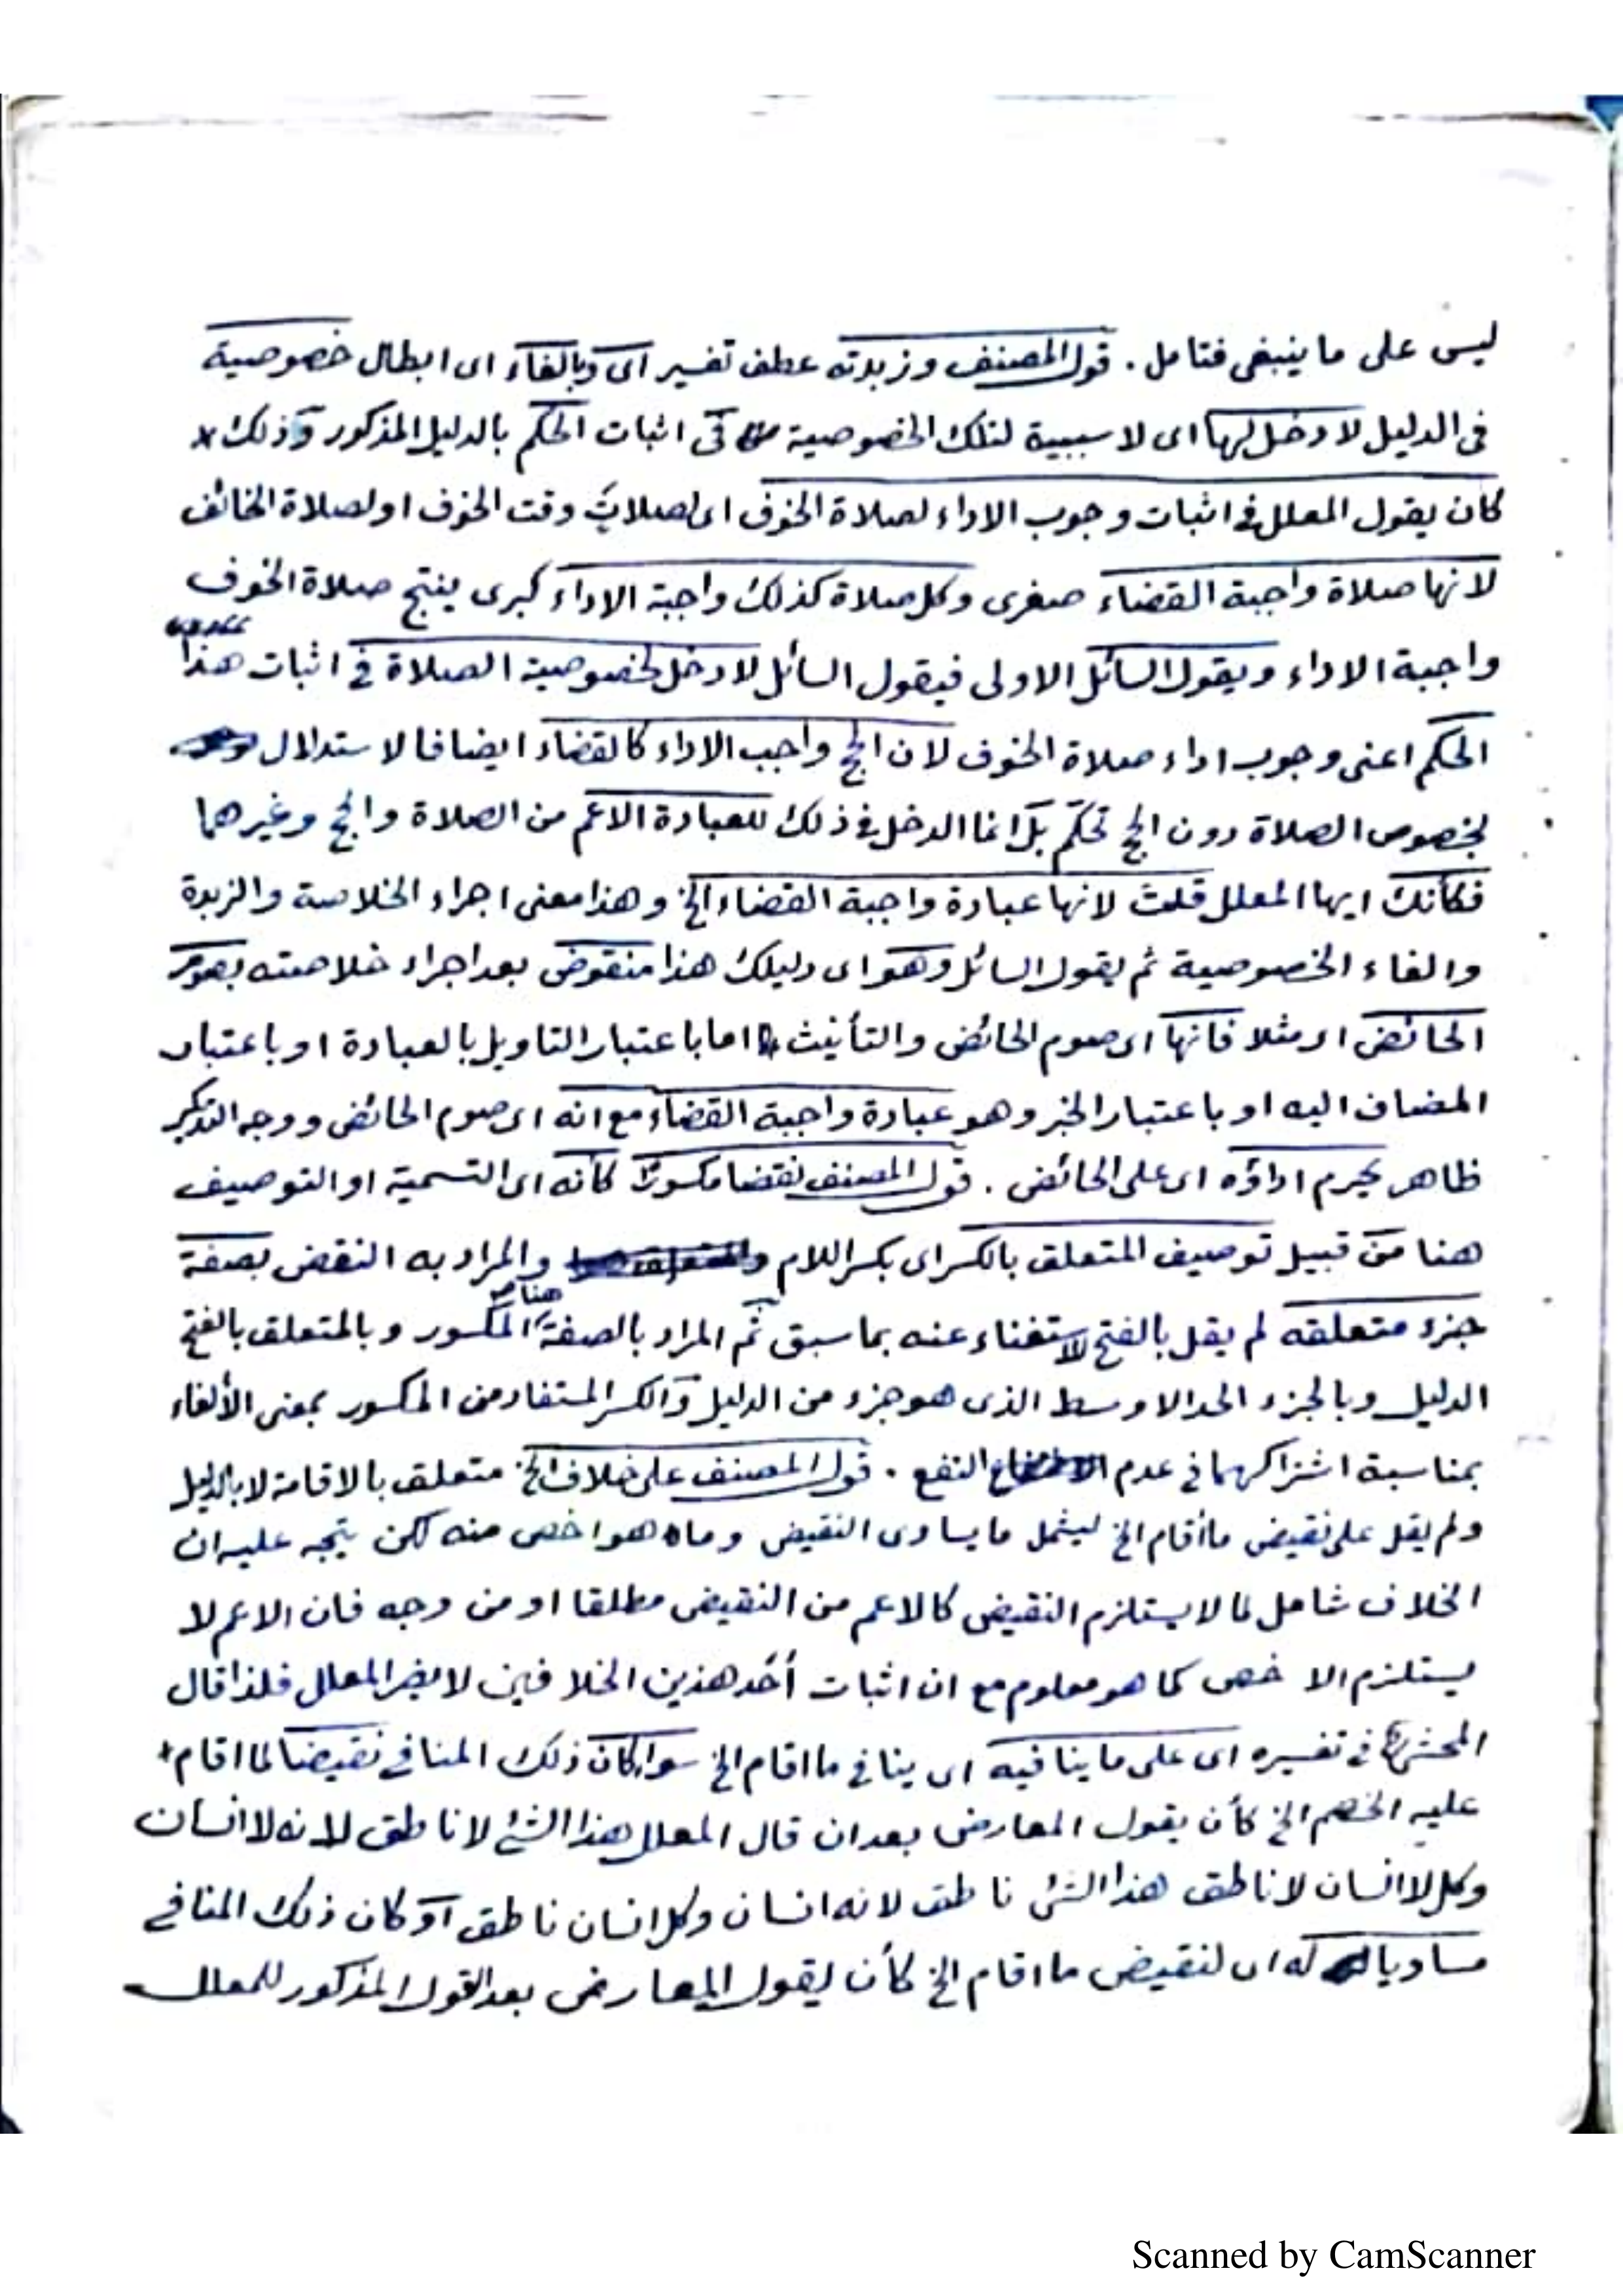 ليس على ما ينبغى فتامل . قول المصنف وزبدته عطف تفسير اى وبالغاء اى ابطال خصوصية
فى الدليل لا دخل لها اى لا سببية لتلك الخصوصية فى اثبات الحكم بالدليل المذكور وذلك
كان يقول المعلل فى اثبات وجوب الاداء لصلاة الخوف اى لصلاة وقت الخوف او لصلاة الخائف
لانها صلاة واجبة القضاء صغرى وكل صلاة كذلك واجبة الاداء كبرى ينتج صلاة الخوف
واجبة الاداء ويقول السائل الاولى فيقول السائل لا دخل لخصوصية الصلاة فى اثبات هذا
الحكم اعنى وجوب اداء صلاة الخوف لان الحج واجب الاداء كالقضاء ايضا فالاستدلال
بخصوص الصلاة دون الحج تحكّم بل انما الدخل فى ذلك للعبادة الاعم من الصلاة والحج وغيرهما
فكأنك ايها المعلل قلت لانها عبادة واجبة القضاء الخ وهذا معنى اجراء الخلاصة والزبدة
والغاء الخصوصية ثم يقول السائل وهو اى دليلك هذا منقوض بعد اجراء خلاصته بصوم
الحائض اى مثلا فانها اى صوم الحائض والتأنيث اما باعتبار التاويل بالعبادة او باعتبار
المضاف اليه او باعتبار الخبر وهو عبادة واجبة القضاء مع انه اى صوم الحائض ووجه التذكير
ظاهر يحرم اداؤه اى على الحائض . قول المصنف نقضا مكسورا كأنه اى التسمية او التوصيف
هنا من قبيل توصيف المتعلق بالكسر اى بكسر اللام والمراد به النقض بصفة
جزء متعلقه لم يقل بالفتح لاستغناء عنه بما سبق ثم المراد بالصفة هنا المكسور وبالمتعلق بالفتح
الدليل وبالجزء الحد الاوسط الذى هو جزء من الدليل والكسر المستفاد من المكسور بمعنى الألغاء
بمناسبة اشتراكهما فى عدم النفع . قول المصنف على خلاف الخ متعلق بالاقامة لا بالدليل
ولم يقل على نقيض ما أقام الخ ليشمل ما يساوى النقيض وما هو اخص منه لكن يتجه عليه ان
الخلاف شامل لما لا يستلزم النقيض كالاعم من النقيض مطلقا او من وجه فان الاعم لا
يستلزم الاخص كما هو معلوم مع ان اثبات أحد هذين الخلافين لا يضر المعلل فلذا قال
المحشى فى تفسيره اى على ما ينافيه اى ينافى ما اقام الخ سواء كان ذلك المنافى نقيضا لما اقام
عليه الخصم الخ كأن يقول المعارض بعد ان قال المعلل هذا الشئ لا ناطق لانه لا انسان
وكل لا انسان لا ناطق هذا الشئ ناطق لانه انسان وكل انسان ناطق او كان ذلك المنافى
مساويا له اى لنقيض ما اقام الخ كأن يقول المعارض بعد القول المذكور للمعلل
Scanned by CamScanner